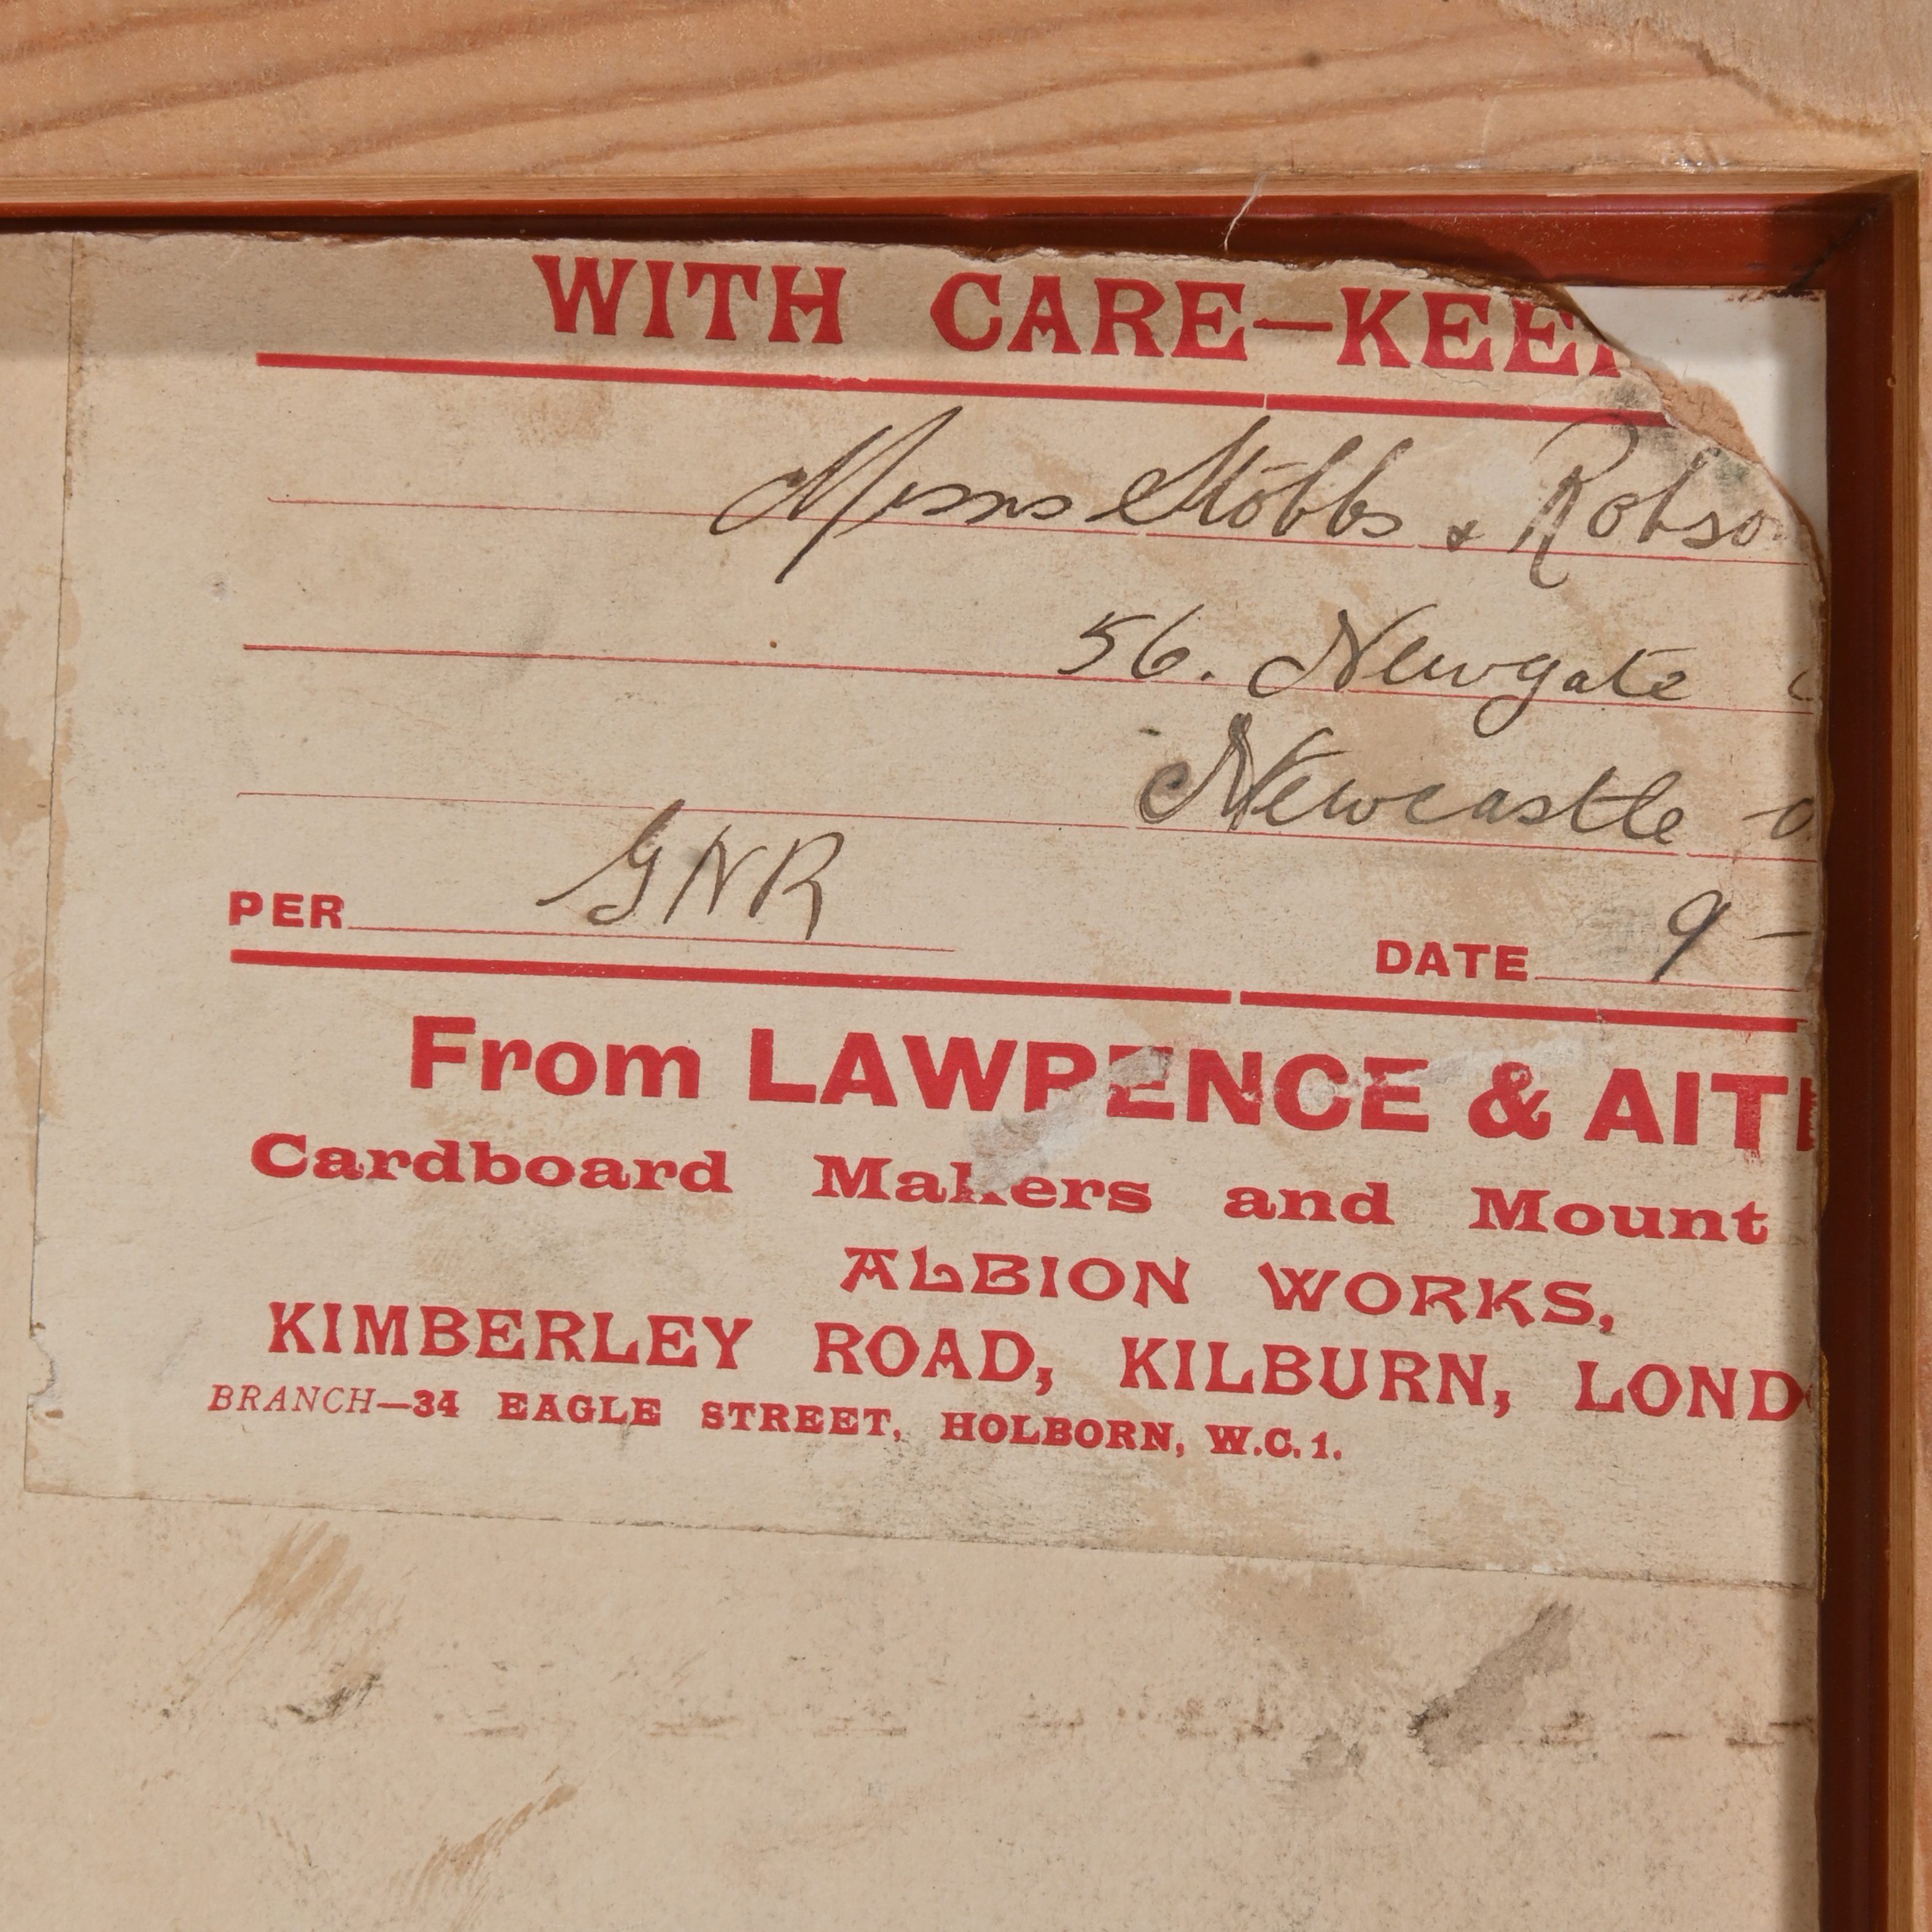 WITH CARE—KEEP
Messrs Stobbs & Robso
56. Newgate
Newcastle - o
PER GNR DATE 9 -
From LAWRENCE & AIT
Cardboard Makers and Mount
ALBION WORKS,
KIMBERLEY ROAD, KILBURN, LONDO
BRANCH—34 EAGLE STREET, HOLBORN, W.C.1.